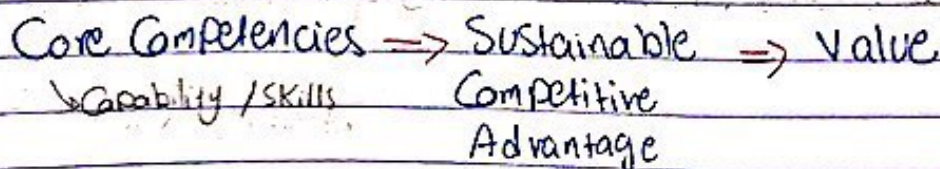 Core Competencies => Sustainable => Value
↳Capability / Skills Competitive
Advantage